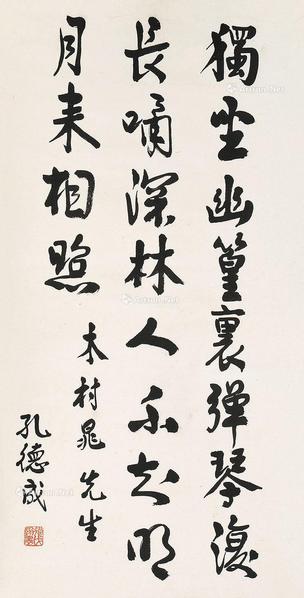 獨坐幽篁裏彈琴復
長嘯深林人不知明
月来相照
木村晁先生
孔德成